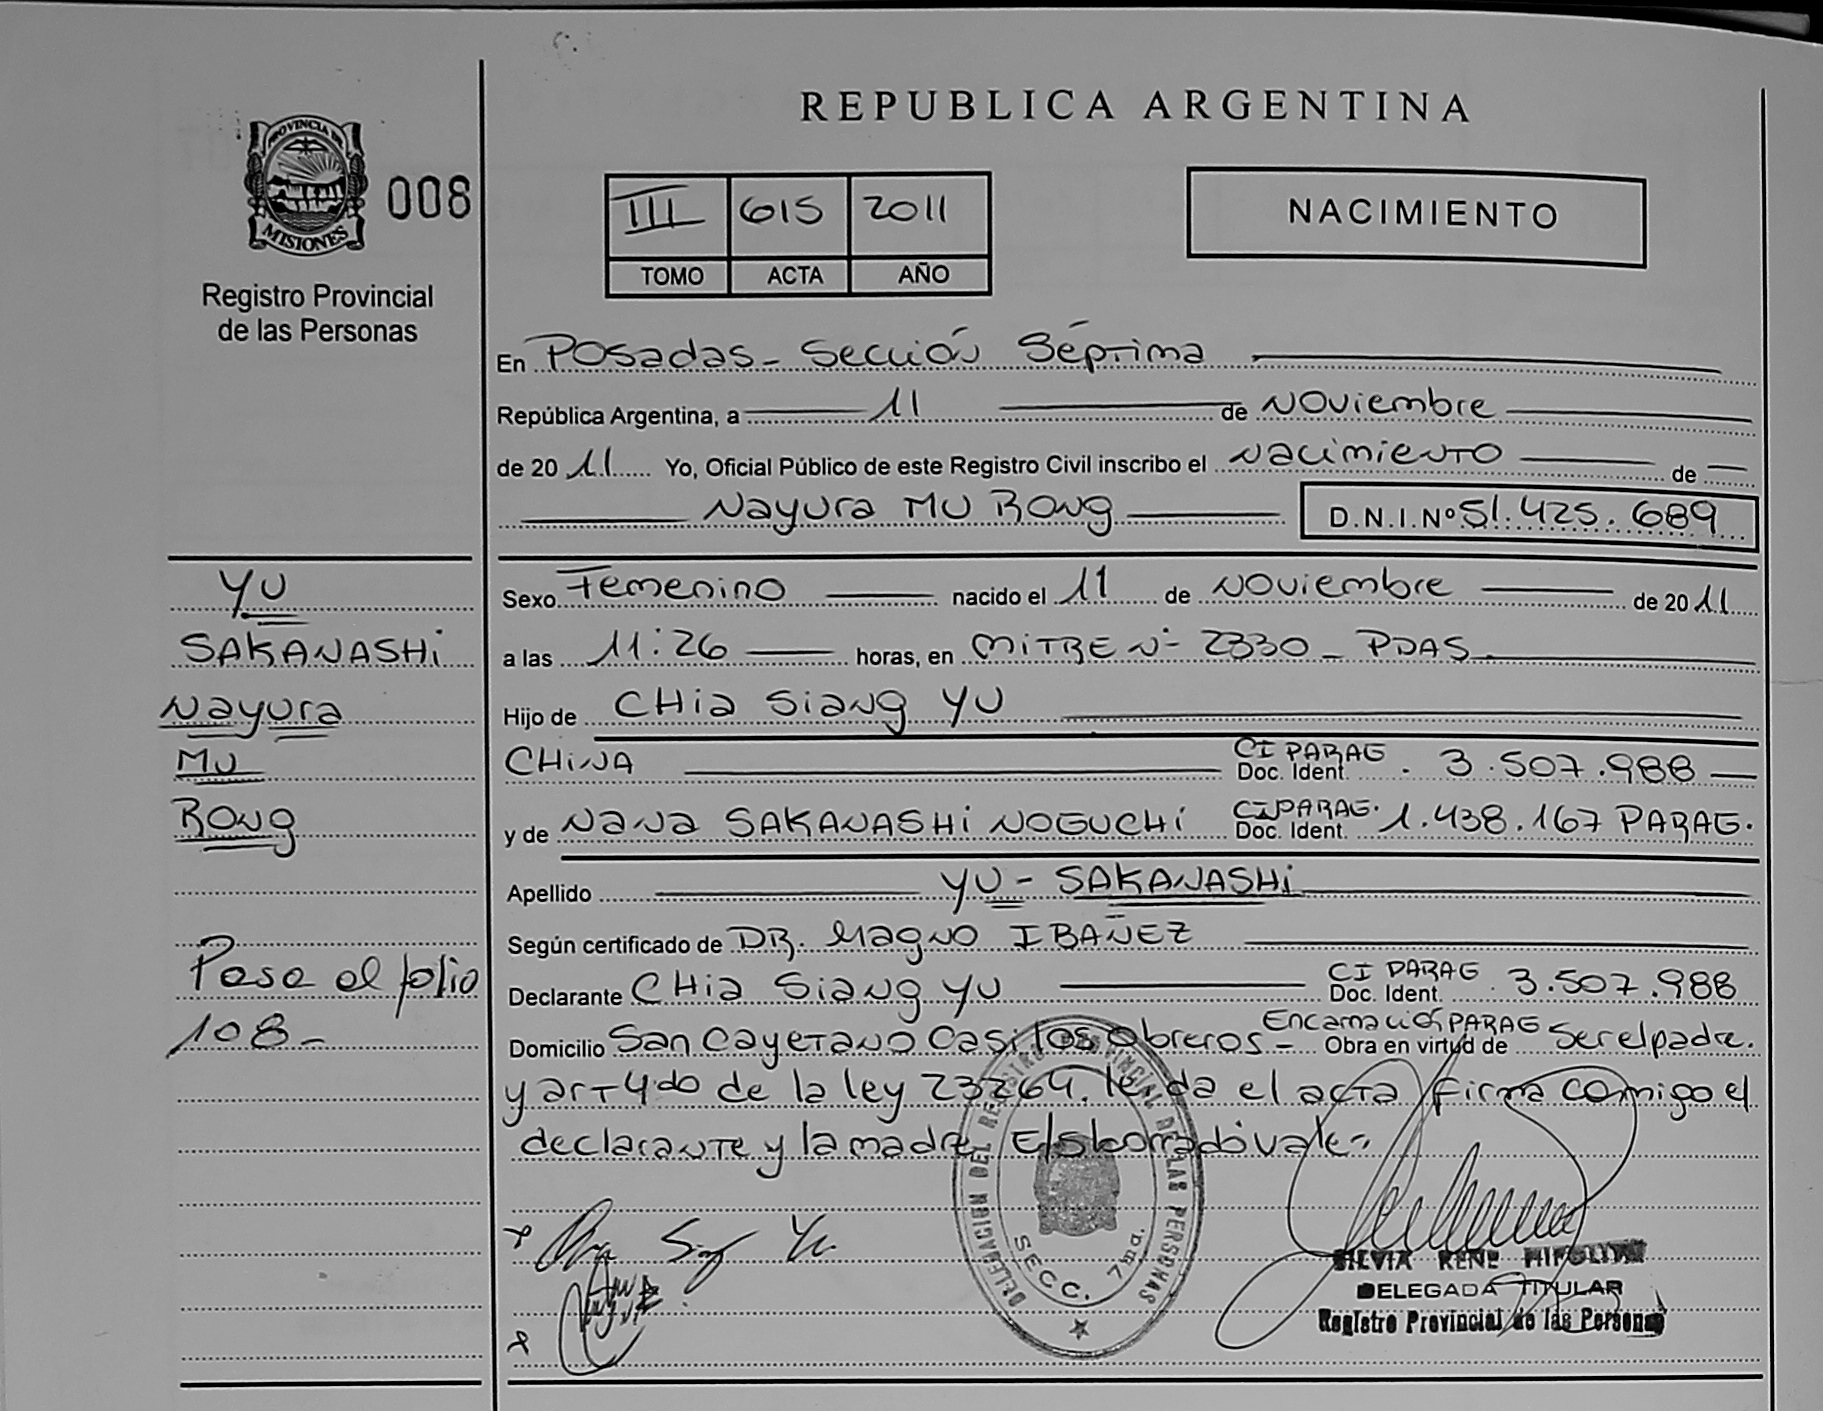 REPUBLICA ARGENTINA
PROVINCIA DE
MISIONES
008
Registro Provincial
de las Personas
III 615 2011
TOMO ACTA AÑO
NACIMIENTO
En Posadas - Sección Séptima
República Argentina, a 11 de Noviembre
de 2011 Yo, Oficial Público de este Registro Civil inscribo el Nacimiento de
Nayura MU Rong D.N.I.Nº 51.425.689
YU
SAKANASHi
Nayura
MU
Rong
Pasa al folio
108-
Sexo Femenino nacido el 11 de Noviembre de 2011
a las 11:26 horas, en MiTRE Nº 2330 - PDAS
Hijo de CHia Siang YU
CHiNA CI PARAG Doc. Ident. 3.507.988
y de NaNa SAKANASHi NOGUCHi CI PARAG. Doc. Ident. 1.438.167 PARAG.
Apellido YU - SAKANASHi
Según certificado de DR. Magno IBAÑEZ
Declarante CHia Siang YU CI PARAG Doc. Ident. 3.507.988
Domicilio San Cayetano Casi los Obreros - Encarnación PARAG Obra en virtud de Ser el padre.
y art 4do de la ley 23264. le da el acta firma comigo el
declarante y la madre E/s borrado vale-
DELEGACION DEL REGISTRO PROVINCIAL DE LAS PERSONAS
SECC. 7ma.
SILVIA RENE
DELEGADA TITULAR
Registro Provincial de las Personas